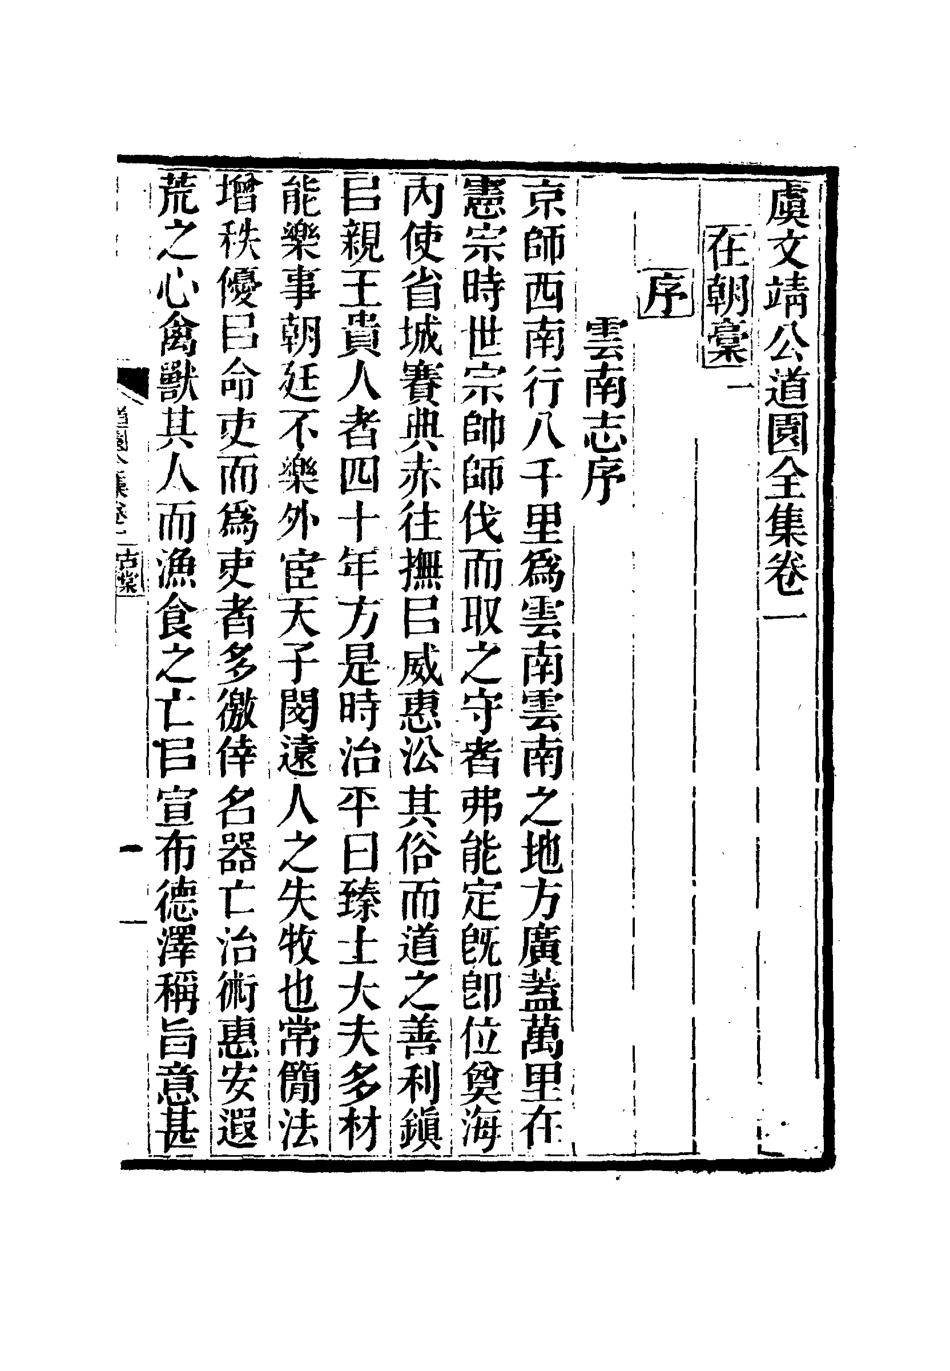 虞文靖公道園全集卷一
在朝稾一
序
雲南志序
京師西南行八千里爲雲南雲南之地方廣蓋萬里在
憲宗時世宗帥師伐而取之守者弗能定旣卽位奠海
內使省城賽典赤往撫㠯威惠沿其俗而道之善利鎭
㠯親王貴人者四十年方是時治平日臻士大夫多材
能樂事朝廷不樂外宦天子閔遠人之失牧也常簡法
增秩優㠯命吏而爲吏者多徼倖名器亡治術惠安遐
荒之心禽獸其人而漁食之亡㠯宣布德澤稱旨意甚
道園全集卷一
古棠
一